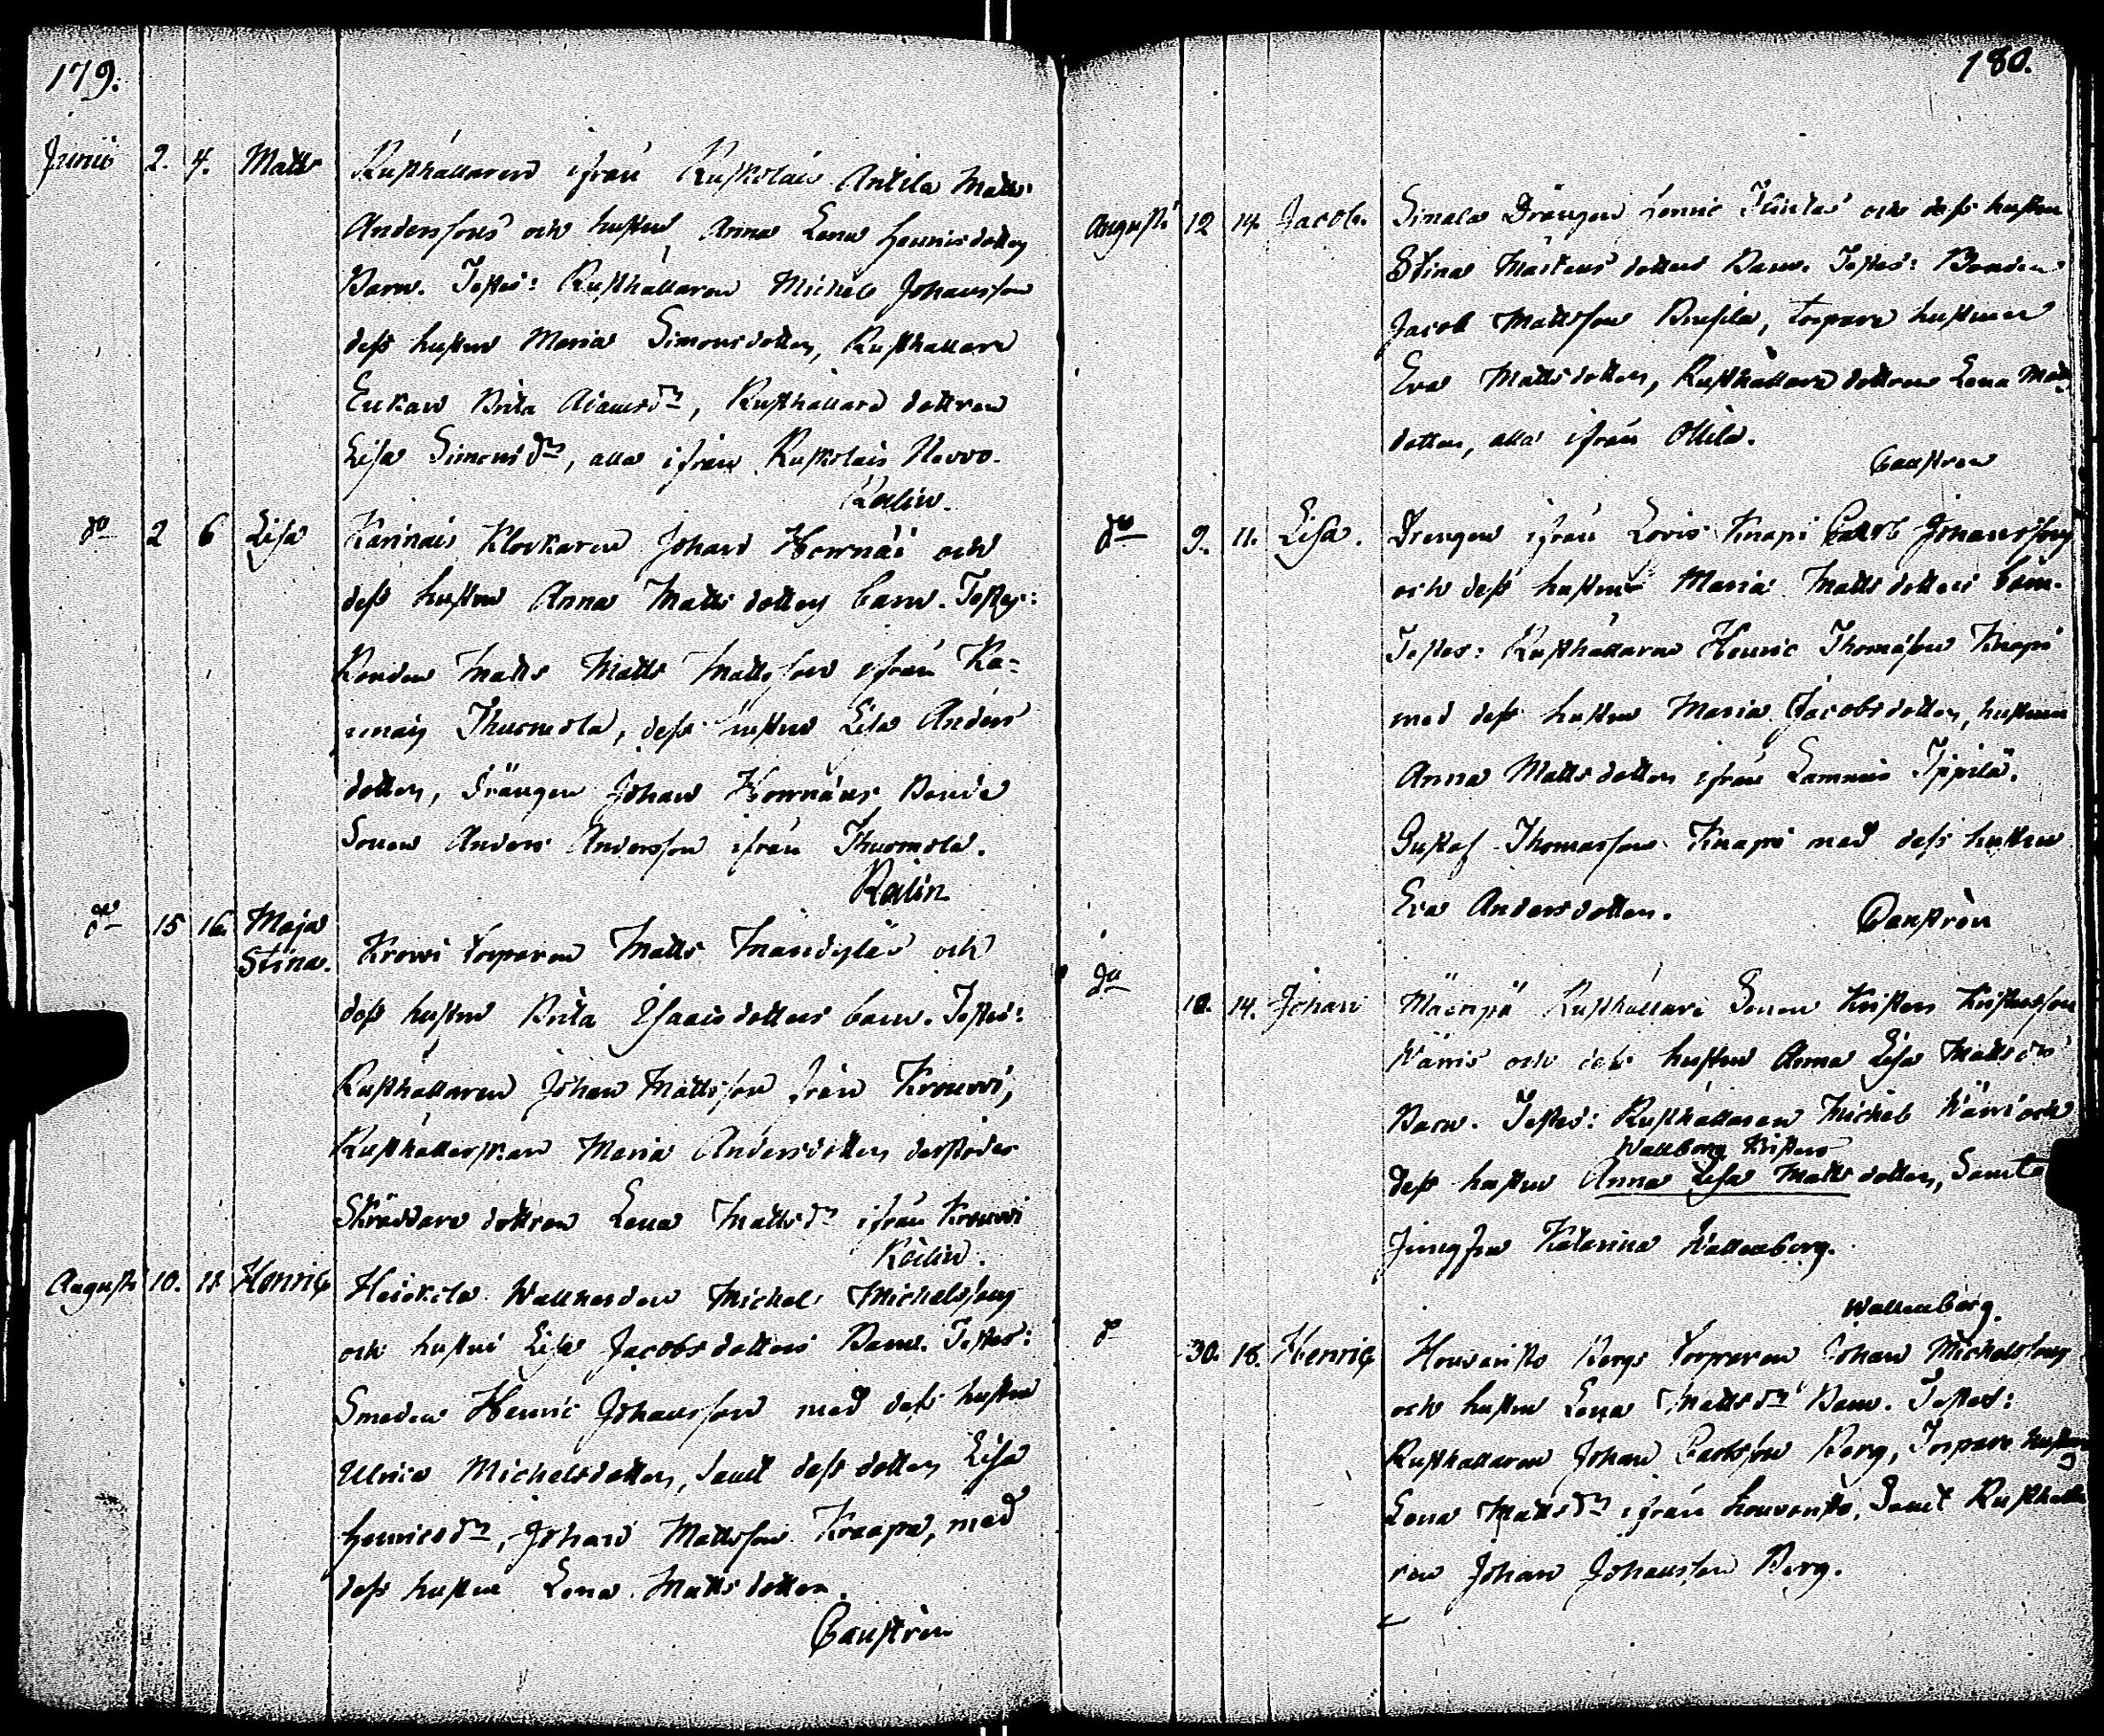 179.
Junii 2. 4. Matts Rusthållaren ifrån Ruskolais Antila Matts
Anderssons och hustru Anna Lena Henricsdotters
Barn. Testes: Rusthållaren Michel Johansson
dess hustru Maria Simonsdotter, Rusthållare
Enkan Brita Adamsdr, Rusthållare dottren
Lisa Simonsdr, alla ifrån Ruskolais
Kalin.
do 2 6 Lisa Klockaren Johan och
dess hustru Anna Matts dotters barn. Testes:
Bonden Matts Matts Mattsson ifrån Ka=
Thuomola, dess hustru Lisa Anders
dotter, Drängen Johan Bonde
Sonen Anders Andersson ifrån Thuomola.
Kalin
do 15 16. Maja
Stina. Krowi torparen Matts och
dess hustru Brita Isaacsdotters barn. Testes:
Rusthållaren Johan Mattsson från
Rusthållerskan Maria Andersdotter
Skräddare dottren Lena Mattsdr ifrån
Kalin.
Augusti 10. 11 Henric Heickola Michel Michelssons
och hustru Lisa Jacobsdotters Barn. Testes:
Smeden Henric Johansson med dess hustru
Ulrica Michelsdotter, samt dess dotter Lisa
Henricsdr, Johan Mattsson Knaapa, med
dess hustru Lena Mattsdotter.
180.
Augusti 12 14. Jacob. Drängen och dess hustru
Stina Mårtens dotters Barn. Testes: Bonden
Jacob Mattsson torpare hustrun
Eva Mattsdotter, Rusthållare dottren Lena Matts
dotter, alla ifrån Ollila.
do 9. 11. Lisa. Drengen ifrån Loris Knapi Carl Johanssons
och dess hustru Maria Mattsdotters barn.
Testes: Rusthållaren Henric Thomasson Knapi
med dess hustru Maria Jacobsdotter, hustrun
Anna Mattsdotter ifrån Lammais
Gustaf Thomasson Knapi med dess hustru
Eva Andersdotter.
do
10. 14. Johan Mäenpä Rusthållare Sonen Kristian
och hustru Anna Lisa Mattsdrs
Barn. Testes: Rusthållaren Michel och
Wallborg
dess hustru Anna Lisa Matts dotter, Samt
Jungfru Katarina Wallenberg.
Wallenberg.
do 30. 18. Henric Bergs torparen Johan Michelssons
och hustru Lena Mattsdrs Barn. Testes:
Rusthållaren Johan Carlsson Berg, Torpare hustrun
Lena Mattsdr ifrån samt Rusthålla
ren Johan Johansson Berg.